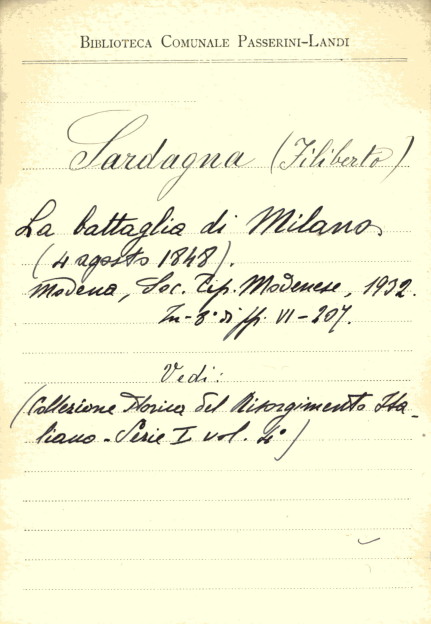 BIBLIOTECA COMUNALE PASSERINI-LANDI
Sardagna (Filiberto)
La battaglia di Milano
(4 agosto 1848).
Modena, Soc. Tip. Modenese, 1932.
In-8° di pp. VI-207.
Vedi:
(Collezione Storica del Risorgimento Ita-
liano - Serie I vol. 4°)